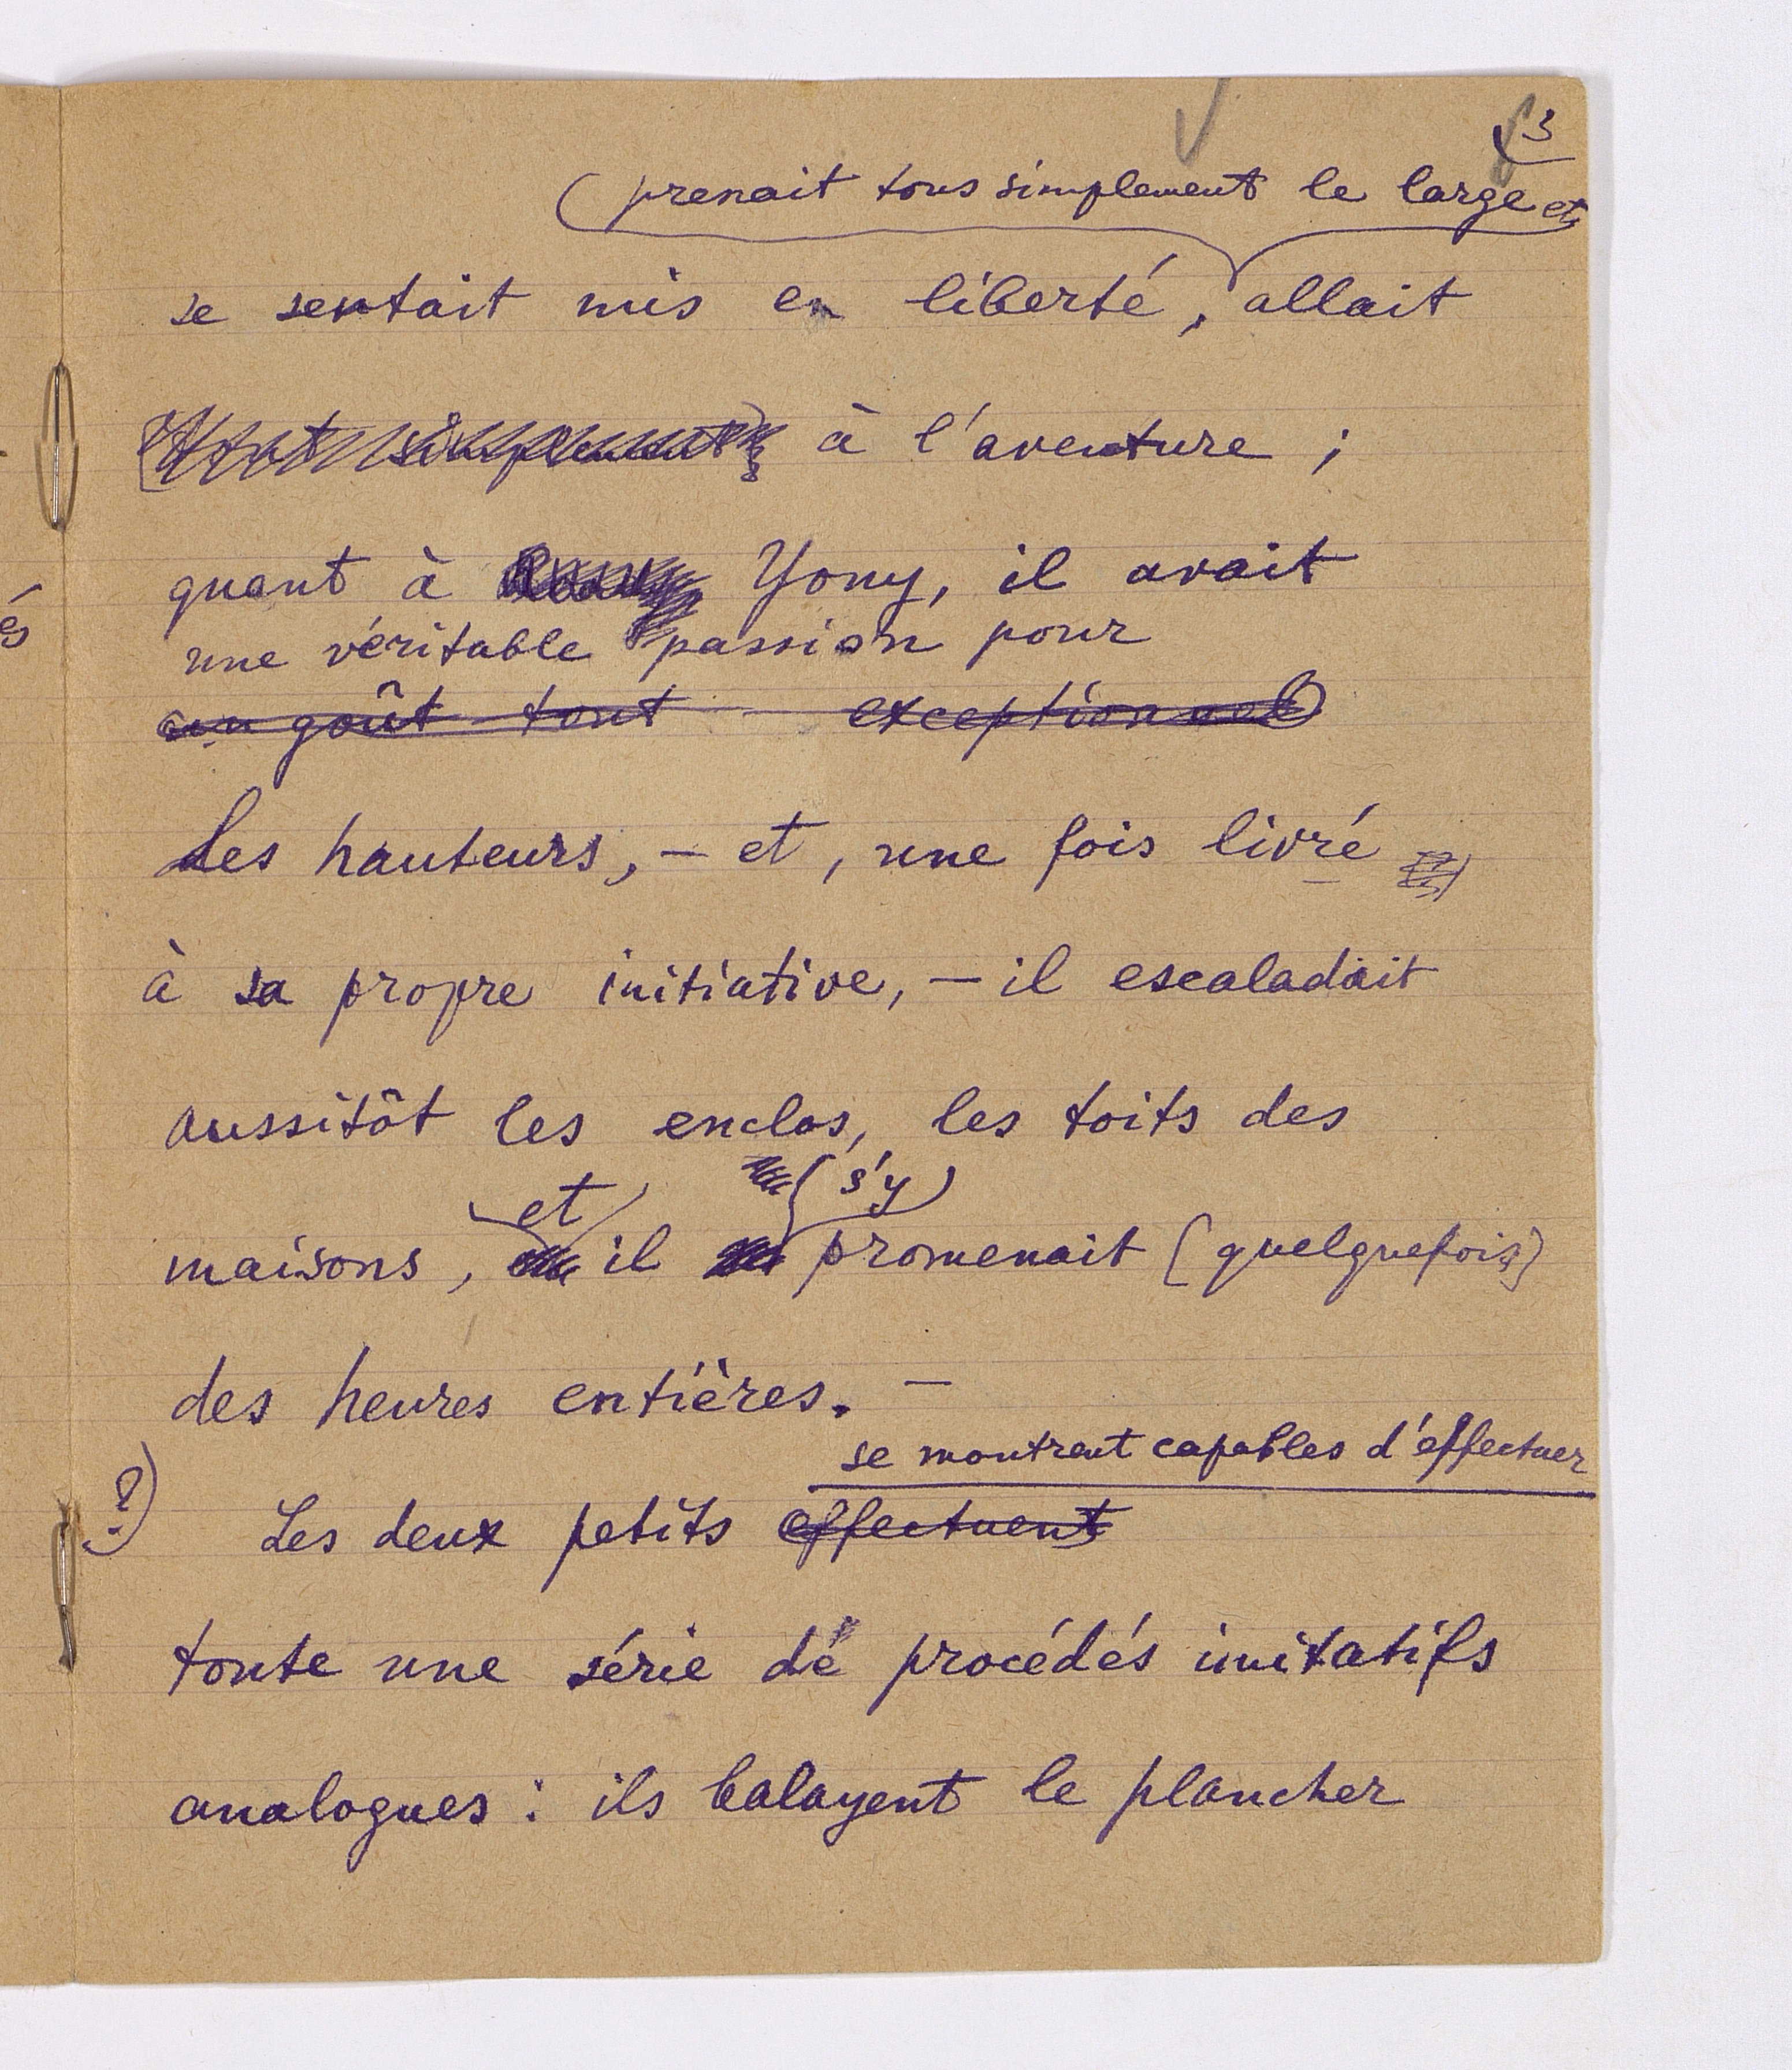 3
(prenait tous simplement le large et
se sentait mis en liberté, allait
à l'aventure ;
quant à Yony, il avait
une véritable passion pour
un goût tout exceptionnel
les hauteurs, – et, une fois livré
à sa propre initiative, – il escaladait
aussitôt les enclos, les toits des
et (s'y)
maisons, il promenait (quelquefois)
des heures entières. –
se montrent capables d'effectuer
?) Les deux petits effectuent
toute une série de procédés imitatifs
analogues : ils balayent le plancher